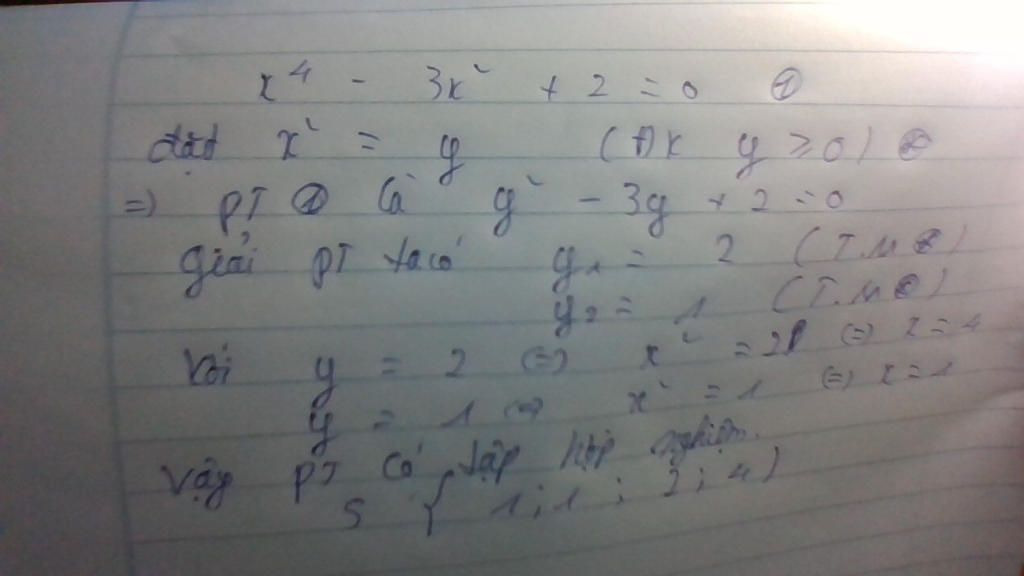 x⁴ - 3x² + 2 = 0 ①
đặt x² = y (ĐK y ≥ 0)
=> PT ① là y² - 3y + 2 = 0
giải PT ta có y₁ = 2 (T.M)
y₂ = 1 (T.M)
Với y = 2 <=> x² = 2 <=> x = 4
y = 1 <=> x² = 1 <=> x = 1
Vậy PT có tập hợp nghiệm.
S { 1 ; 1 ; 2 ; 4 }